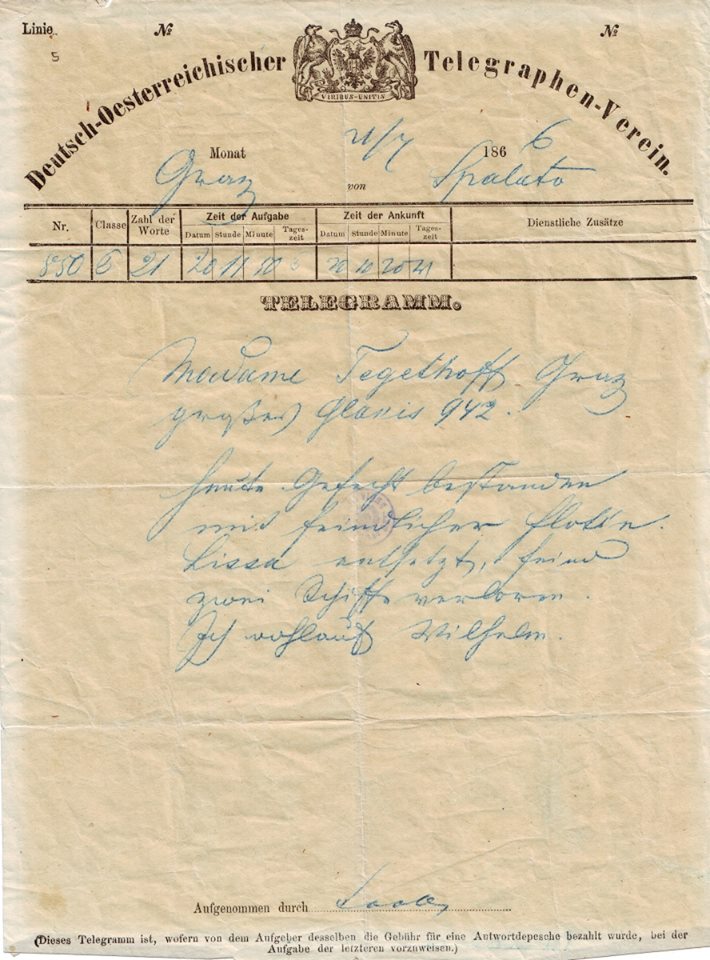 Linie № №
5
Deutsch-Oesterreichischer Telegraphen-Verein.
VIRIBUS UNITIS
Monat 21/7 1866
Graz von Spalato
Nr. Classe Zahl der Worte Zeit der Aufgabe Zeit der Ankunft Dienstliche Zusätze
Datum Stunde Minute Tageszeit Datum Stunde Minute Tageszeit
850 6 21 20 11 10 20 10 20
TELEGRAMM.
Madame Tegethoff Graz
großes Glacis 942.
heute Gefecht bestanden
mit feindlicher Flotte.
Lissa entsetzt, feind
zwei Schiffe verloren.
Ich wohlauf Wilhelm.
Aufgenommen durch
(Dieses Telegramm ist, wofern von dem Aufgeber desselben die Gebühr für eine Antwortdepesche bezahlt wurde, bei der
Aufgabe der letzteren vorzuweisen.)